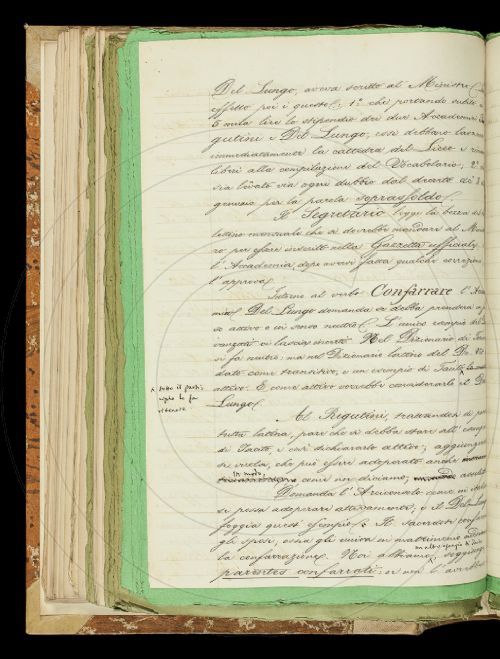 Del Lungo, aveva scritto al Ministro
effetto poi i quesiti: 1.° che portando subito a
5 mila lire lo stipendio dei due Accademici
gutini e Del Lungo, essi debbano lasciare
immediatamente la cattedra del Liceo e
liberi alla compilazione del Vocabolario; 2.°
sia levato via ogni dubbio dal decreto di
gennaio per la parola soprassoldo.
Il Segretario legge la bozza del
lettino mensuale che si dovrebbe mandare al
ro per essere inserito nella Gazzetta ufficiale,
l'Accademia, dopo avervi fatta qualche correzione
l'approva.
Intorno al verbo Confarrare l'
Del Lungo domanda se debba prendersi
so attivo o in senso neutro. L'unico esempio del
ci lascia incerti. Nel Dizionario di
si fa neutro: ma nel Dizionario latino del De Vit
dato come transitivo, e un esempio di Tacito
attivo. E come attivo vorrebbe considerarlo il Del
Lungo.
Al Rigutini, trattandosi di
latina, pare che si debba stare all'
di Tacito, e così dichiararlo attivo; aggiungendo
che può essere adoperato anche
in modo,
come noi diciamo, assoluto
Domanda l'Arciconsolo come in
si possa adoperare attivamente, e il Del Lungo
foggia questi esempi: Il sacerdote
gli sposi, ossia gli unisce in matrimonio
un altro esempio di
la confarrazione. Noi abbiamo, soggiunge
parentes confarrati; se non l'avrebbe
× tutto il parti-
cipio lo fa
ritenere